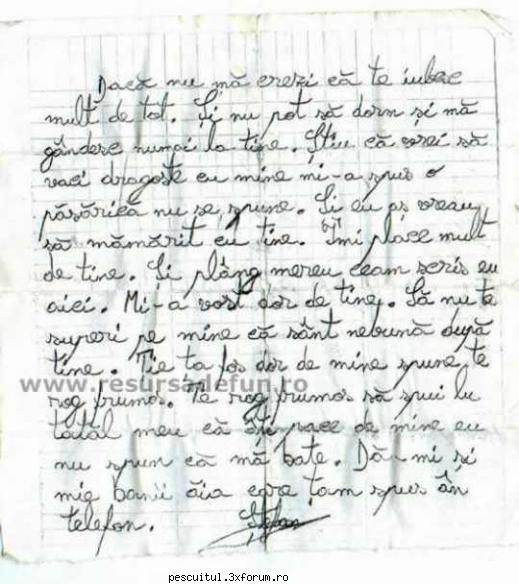 Dacă nu mă crezi că te iubesc
mult de tot. Și nu pot să dorm și mă
gândesc numai la tine. Știu că vrei să
vaci dragoste cu mine mi-a spus o
păsărica nu se spune. Și eu aș vreau
să mămărit cu tine. Îmi place mult
de tine. Și plâng mereu ceam scris eu
aici. Mi-a vost dor de tine. Să nu te
superi pe mine că sânt nebună după
tine. Tie ta fos dor de mine spune, te
rog frumos. Te rog frumos să spui lu
tatăl meu că îți pace de mine eu
nu spun că mă bate. Dă-mi și
mie banii ăia care țam spus ân
telefon.
www.resursadefun.ro
pescuitul.3xforum.ro